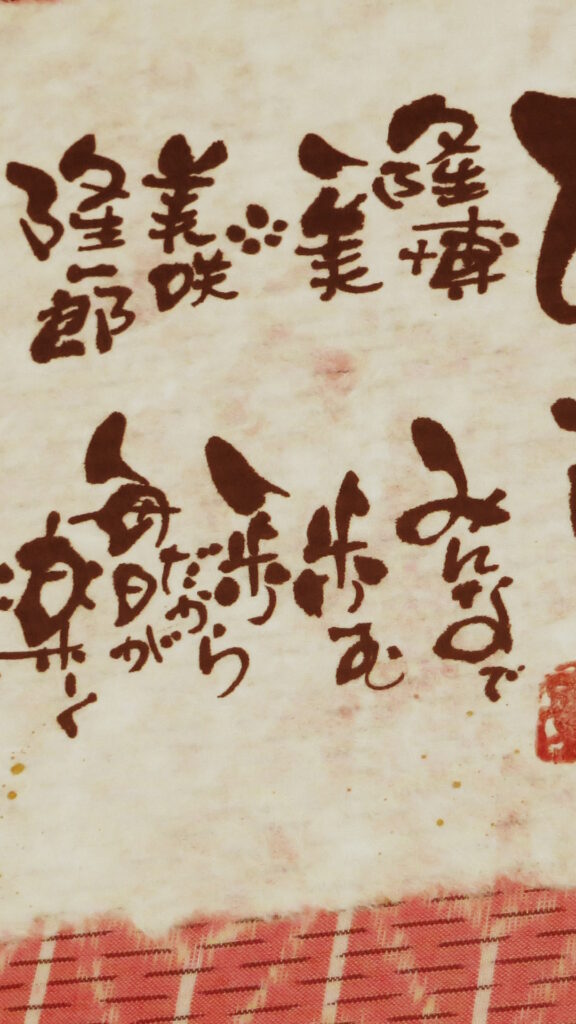 隆博
一美
美咲
隆一郎
みんなで
歩む
一歩
だから
毎日が
楽しく